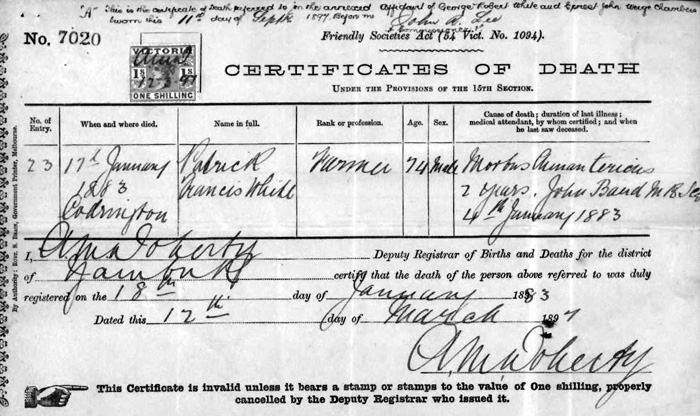 "A" This is the Certificate of Death referred to in the annexed Affidavit of George Robert White and Ernest John Wruge Chambers
sworn this 11th day of Septr 1897 Before me
John A. Lee
No. 7020
Friendly Societies Act (54 Vict. No. 1094).
VICTORIA
12.3.97
1S 1S
ONE SHILLING
CERTIFICATE OF DEATH
UNDER THE PROVISIONS OF THE 15TH SECTION.
No. of Entry.
When and where died.
Name in full.
Rank or profession.
Age.
Sex.
Cause of death; duration of last illness; medical attendant, by whom certified; and when he last saw deceased.
23
17th January
1883
Codrington
Patrick
Francis White
Farmer
74
Male
Morbus
2 years. John Baird
4th January 1883
I, A McDoherty Deputy Registrar of Births and Deaths for the district
of Yambuk certify that the death of the person above referred to was duly
registered on the 18th day of January 1883
Dated this 12th day of March 1897
A McDoherty
This Certificate is invalid unless it bears a stamp or stamps to the value of One shilling, properly
cancelled by the Deputy Registrar who issued it.
By Authority: Government Printer, Melbourne.